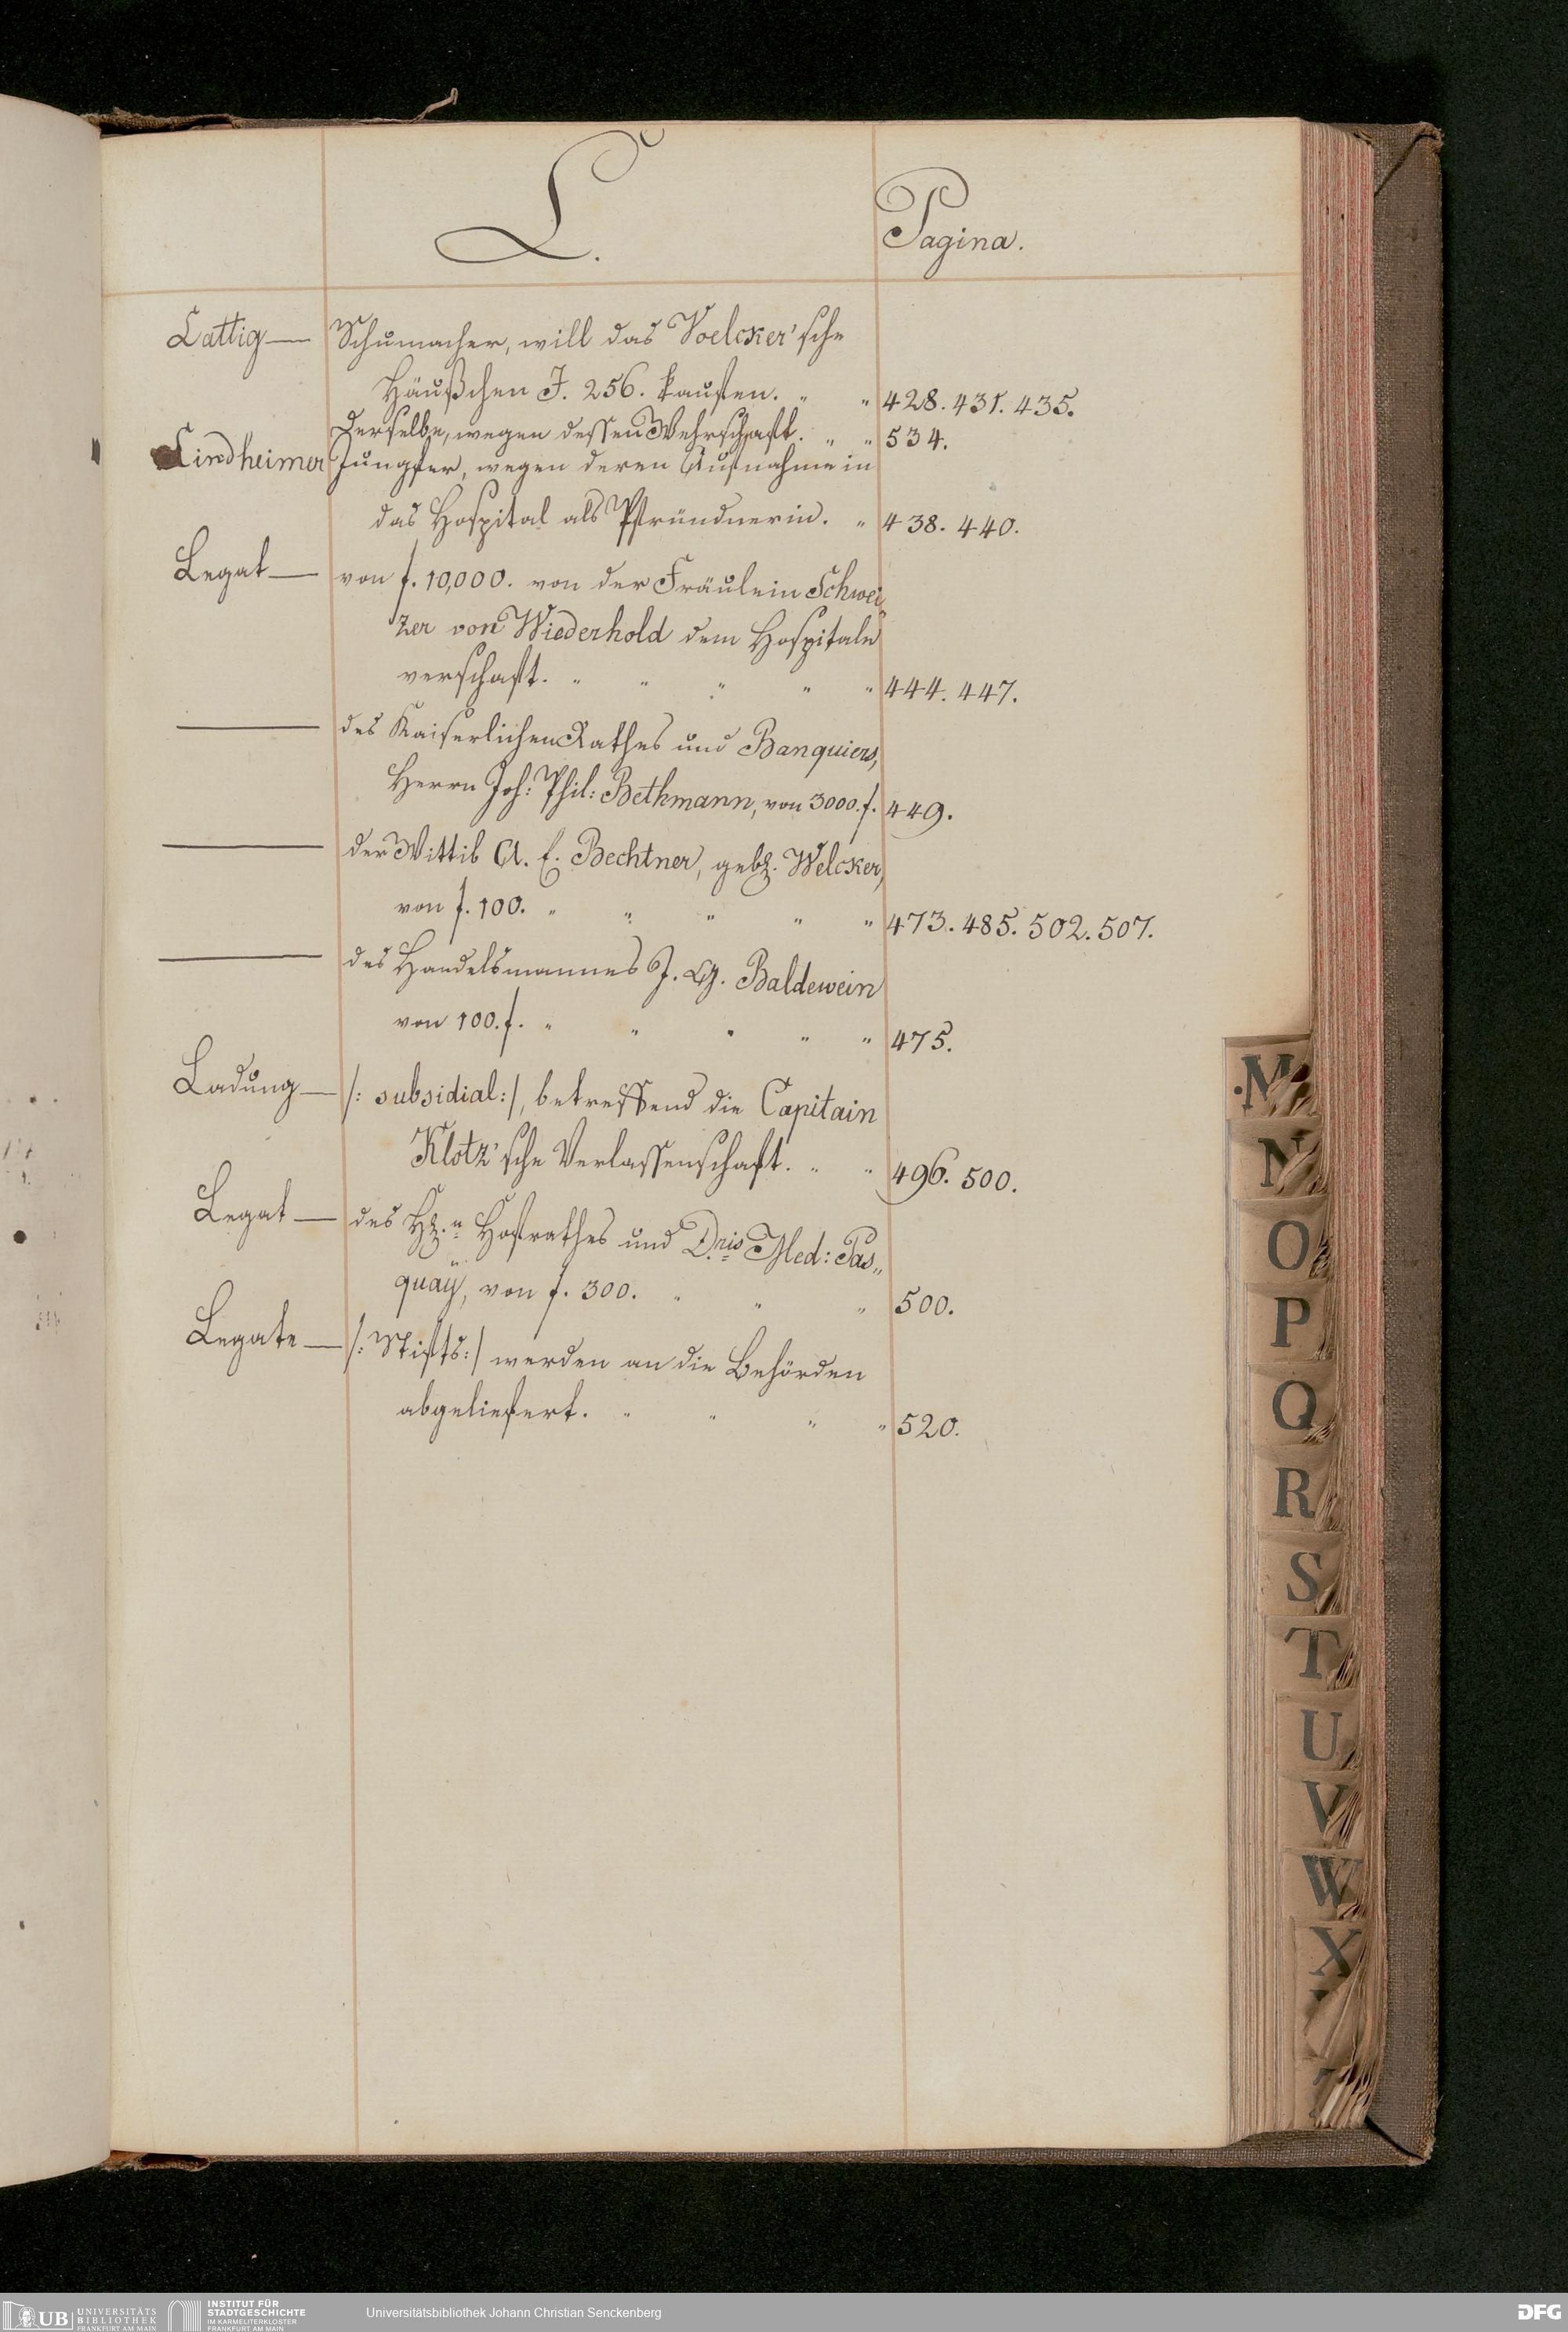 L.
Pagina.
Lattig— Schumacher, will das Voelcker'sche
Häußchen J. 256. kaufen. „ „ 428. 431. 435.
Derselbe, wegen dessen Wehrschaft. „ „ 534.
Lindheimer Jungfer, wegen deren Aufnahme in
das Hospital als Pfründnerin. „ 438. 440.
Legat— von f. 10,000. von der Fräulein Schwei„
zer von Wiederhold dem Hospitale
verschaft. „ „ „ „ „ 444. 447.
— des Kaiserlichen Rathes und Banquiers,
Herrn Joh: Phil: Bethmann, von 3000. f. 449.
— der Wittib A. E. Bechtner, geb. Welcker,
von f. 100. „ „ „ „ „ 473. 485. 502. 507.
— des Handelsmannes J. G. Baldewein
von 100. f. „ „ „ „ „ 475.
Ladung— /: subsidial:/, betreffend die Capitain
Klotz'sche Verlassenschaft. „ „ 496. 500.
Legat— des H.n Hofrathes und Dris Med: Pas„
quaÿ, von f. 300. „ „ „ 500.
Legate— /: Stifts:/ werden an die Behörden
abgeliefert. „ „ „ „ 520.
M
N
O
P
Q
R
S
T
U
V
W
X
UB UNIVERSITÄTS
BIBLIOTHEK
FRANKFURT AM MAIN
INSTITUT FÜR
STADTGESCHICHTE
IM KARMELITERKLOSTER
FRANKFURT AM MAIN
Universitätsbibliothek Johann Christian Senckenberg
DFG